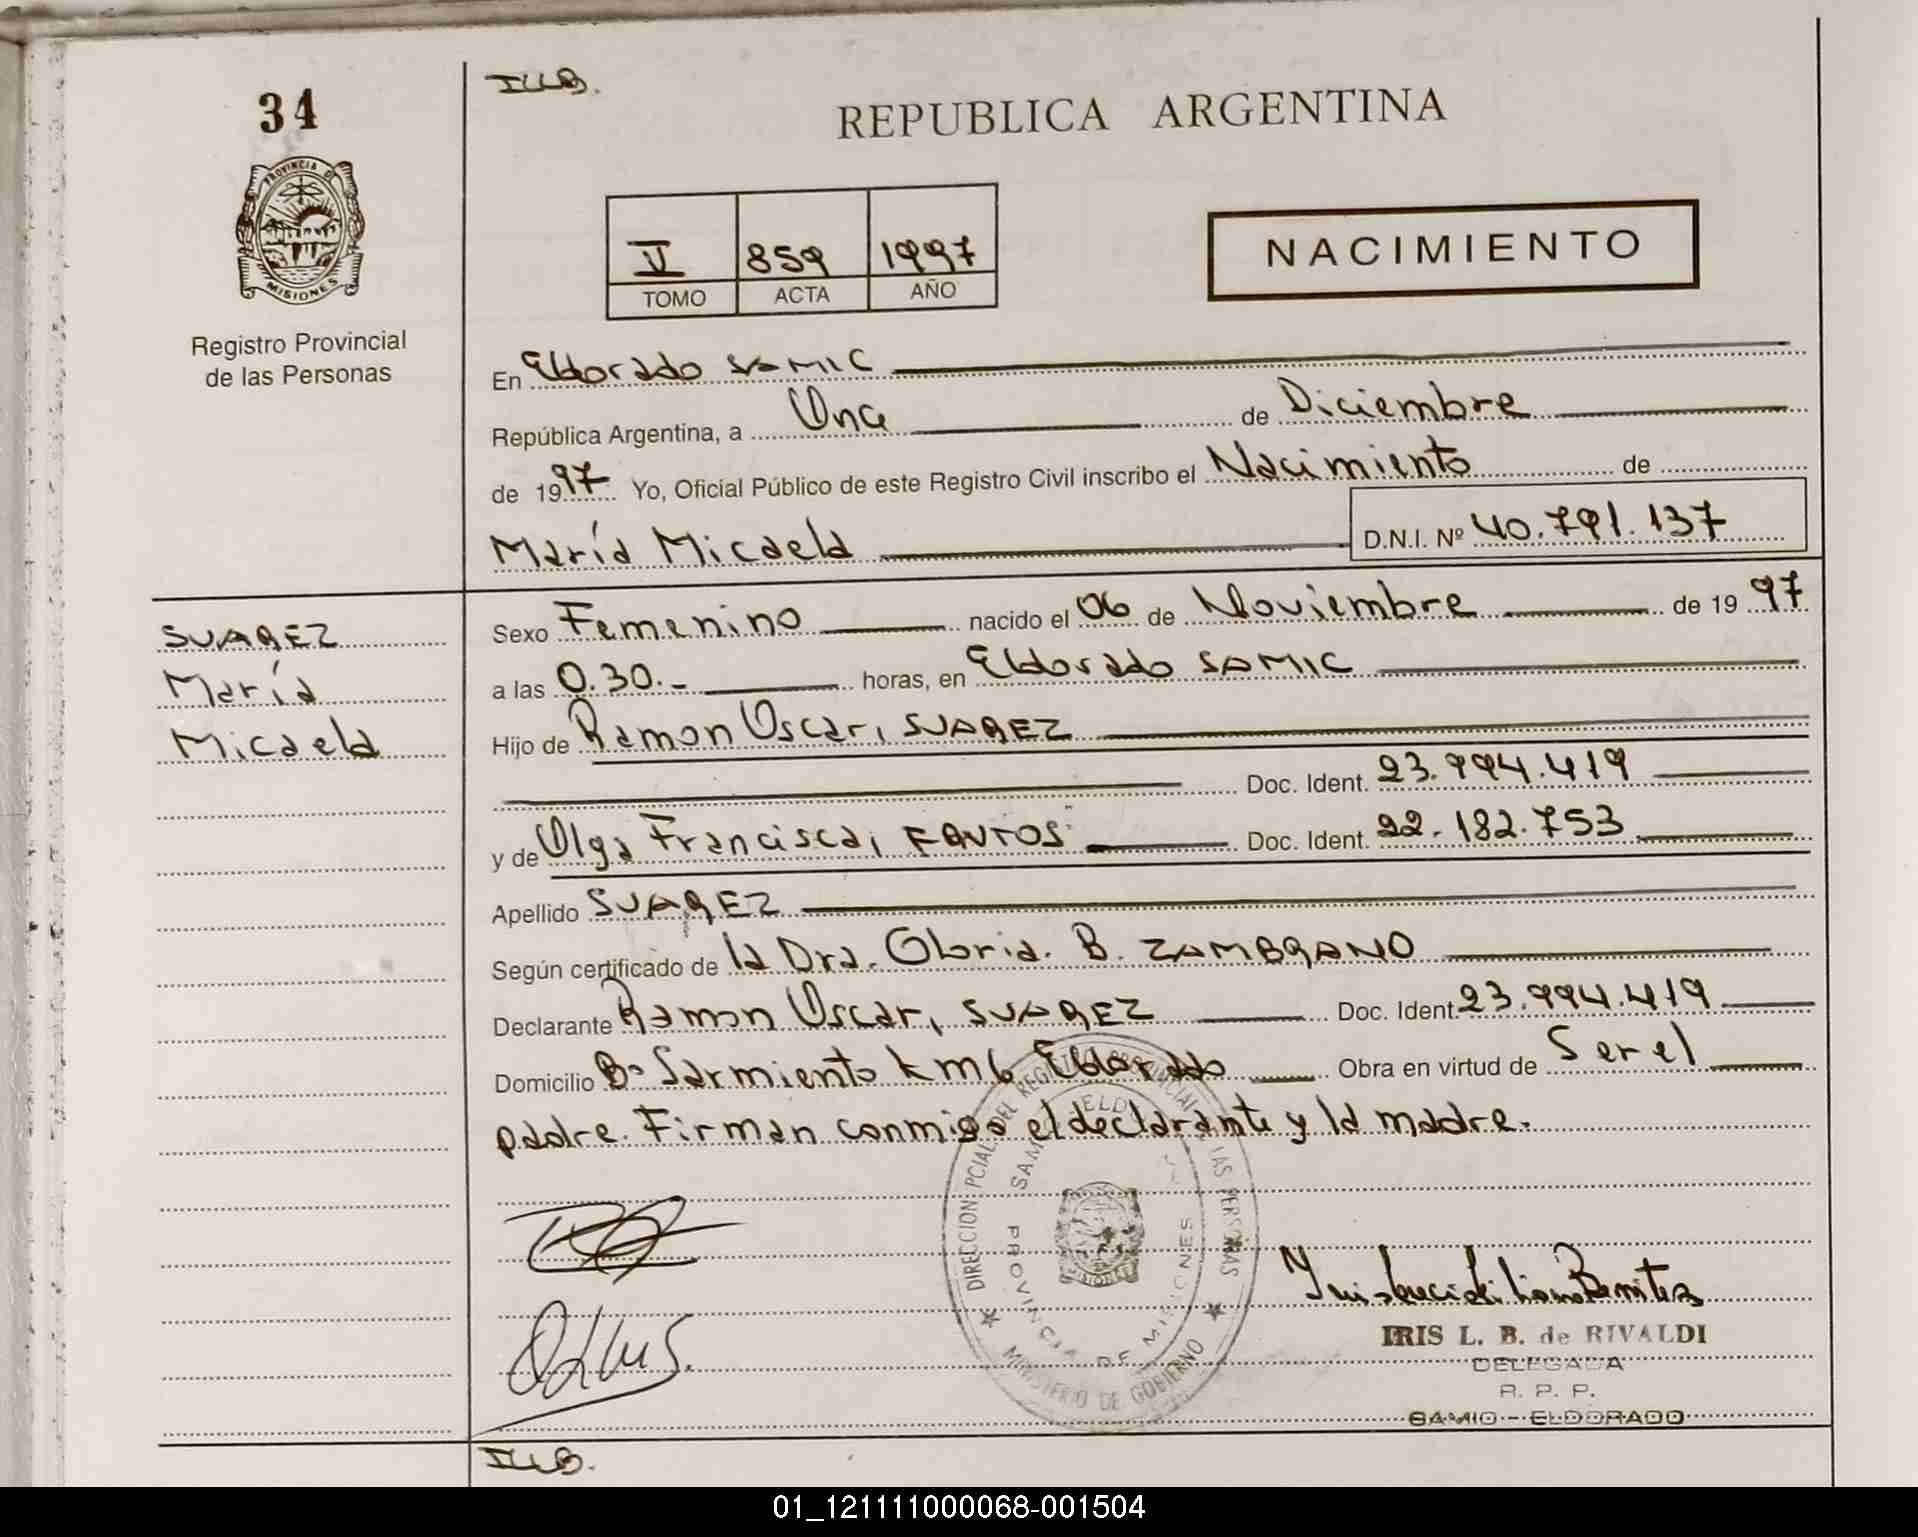 34
I.L.B.
REPUBLICA ARGENTINA
PROVINCIA D
MISIONES
Registro Provincial
de las Personas
V 859 1997
TOMO ACTA AÑO
NACIMIENTO
En Eldorado SAMIC
República Argentina, a Once de Diciembre
de 1997 Yo, Oficial Público de este Registro Civil inscribo el Nacimiento de
María Micaela D.N.I. Nº 40.791.137
SUAREZ
María
Micaela
Sexo Femenino nacido el 06 de Noviembre de 1997
a las 0.30.- horas, en Eldorado SAMIC
Hijo de Ramon Oscar, SUAREZ
Doc. Ident. 23.994.419
y de Olga Francisca, Doc. Ident. 22.182.753
Apellido SUAREZ
Según certificado de la Dra. Gloria. B. ZAMBRANO
Declarante Ramon Oscar, SUAREZ Doc. Ident. 23.994.419
Domicilio Bº Sarmiento km 6 Eldorado Obra en virtud de Ser el
padre. Firman conmigo el declarante y la madre.
DIRECCION PCIAL. DEL REGISTRO PROVINCIAL DE LAS PERSONAS
MINISTERIO DE GOBIERNO
PROVINCIA DE MISIONES
IRIS L. B. de RIVALDI
DELEGADA
R. P. P.
SAMIC - ELDORADO
I.L.B.
01_121111000068-001504